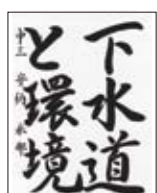 下水道
と環境
中三